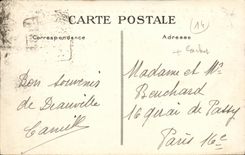 CARTE POSTALE
(14)
Correspondance
Adresse
Bon souvenir
de Deauville
Camille
Madame et Mr
Bouchard
16 quai de Passy
Paris 16e